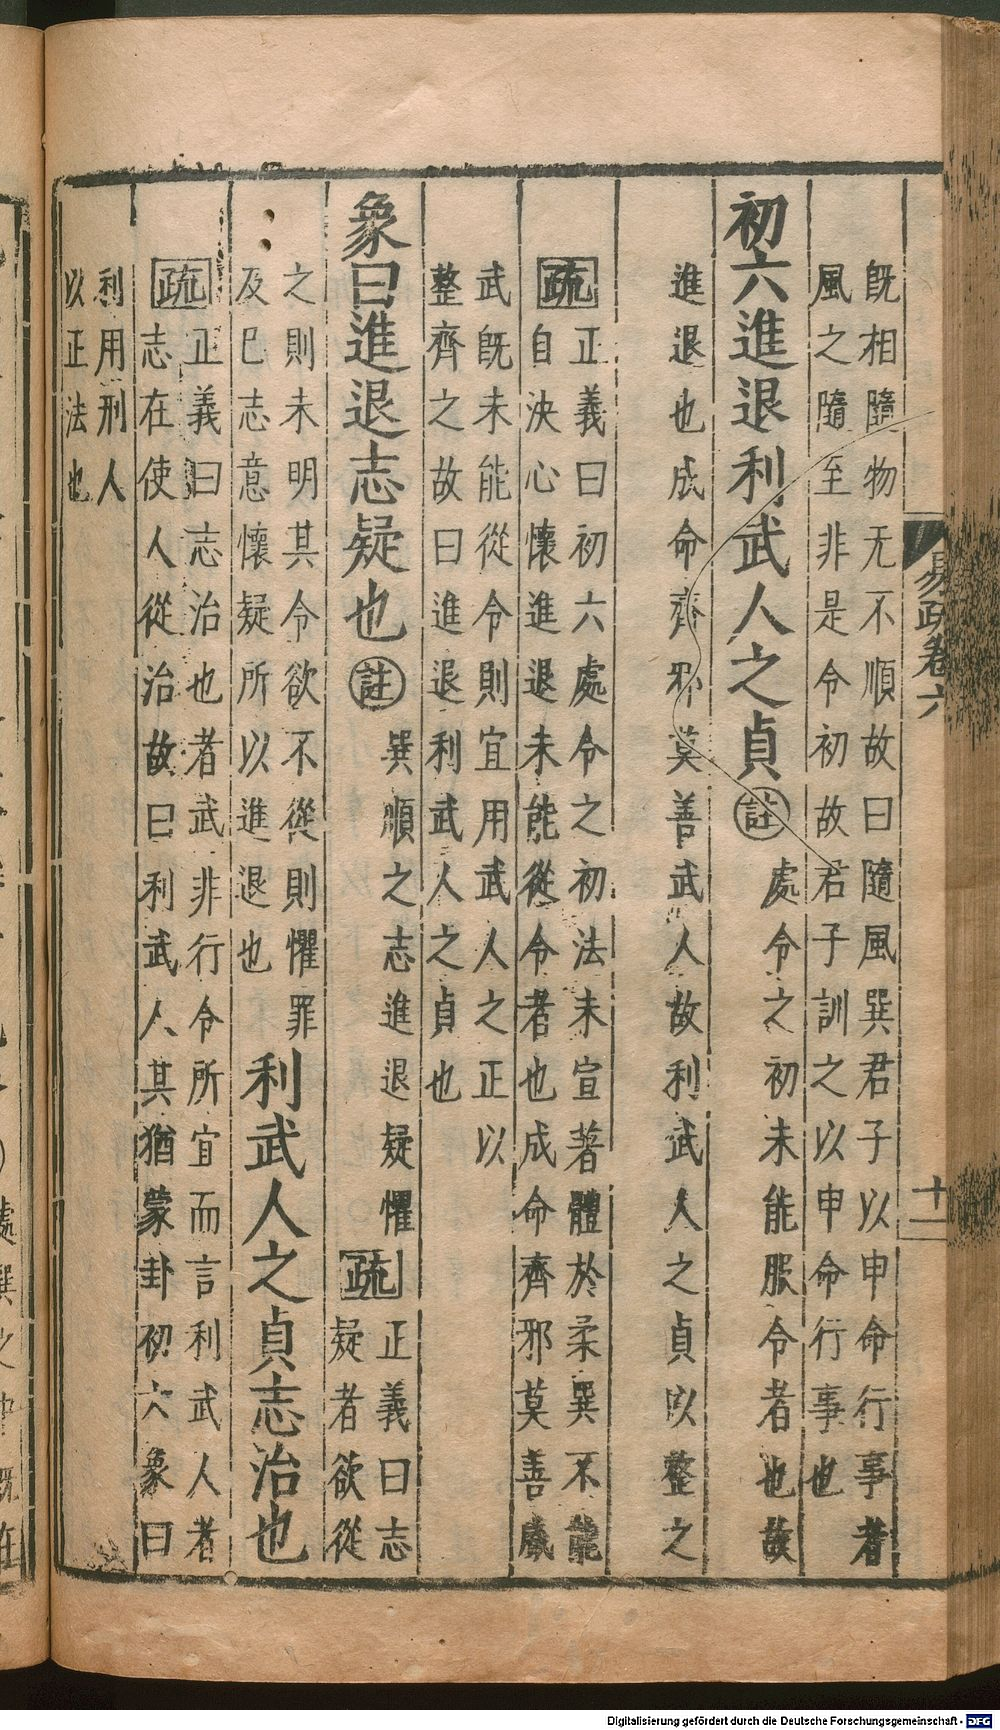 易疏卷六
十一
旣相隨物无不順故曰隨風巽君子以申命行事者
風之隨至非是令初故君子訓之以申命行事也
初六進退利武人之貞註處令之初未能服令者也故
進退也成命齊邪莫善武人故利武人之貞以整之
疏正義曰初六處令之初法未宣著體於柔巽不能
自決心懷進退未能從令者也成命齊邪莫善威
武旣未能從令則宜用武人之正以
整齊之故曰進退利武人之貞也
象曰進退志疑也註巽順之志進退疑懼疏正義曰志
疑者欲從
之則未明其令欲不從則懼罪
及已志意懷疑所以進退也
利武人之貞志治也
疏正義曰志治也者武非行令所宜而言利武人者
志在使人從治故曰利武人其猶蒙卦初六象曰
利用刑人
以正法也
Digitalisierung gefördert durch die Deutsche Forschungsgemeinschaft - DFG